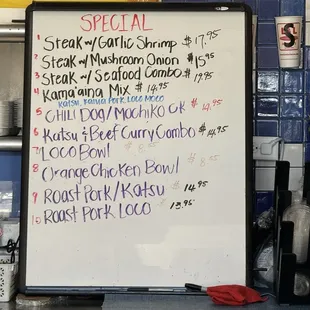 SPECIAL
1 Steak w/ Garlic Shrimp $17.95
2 Steak w/ Mushroom Onion $15.95
3 Steak w/ Seafood Combo $19.95
4 Kama'aina Mix $14.95
Katsu, Kalua Pork, Loco Moco
5 Chili Dog/Mochiko CK $14.95
6 Katsu & Beef Curry Combo $14.95
7 Loco Bowl $8.55
8 Orange Chicken Bowl $8.55
9 Roast Pork/Katsu 14.95
10 Roast Pork Loco 13.95
S